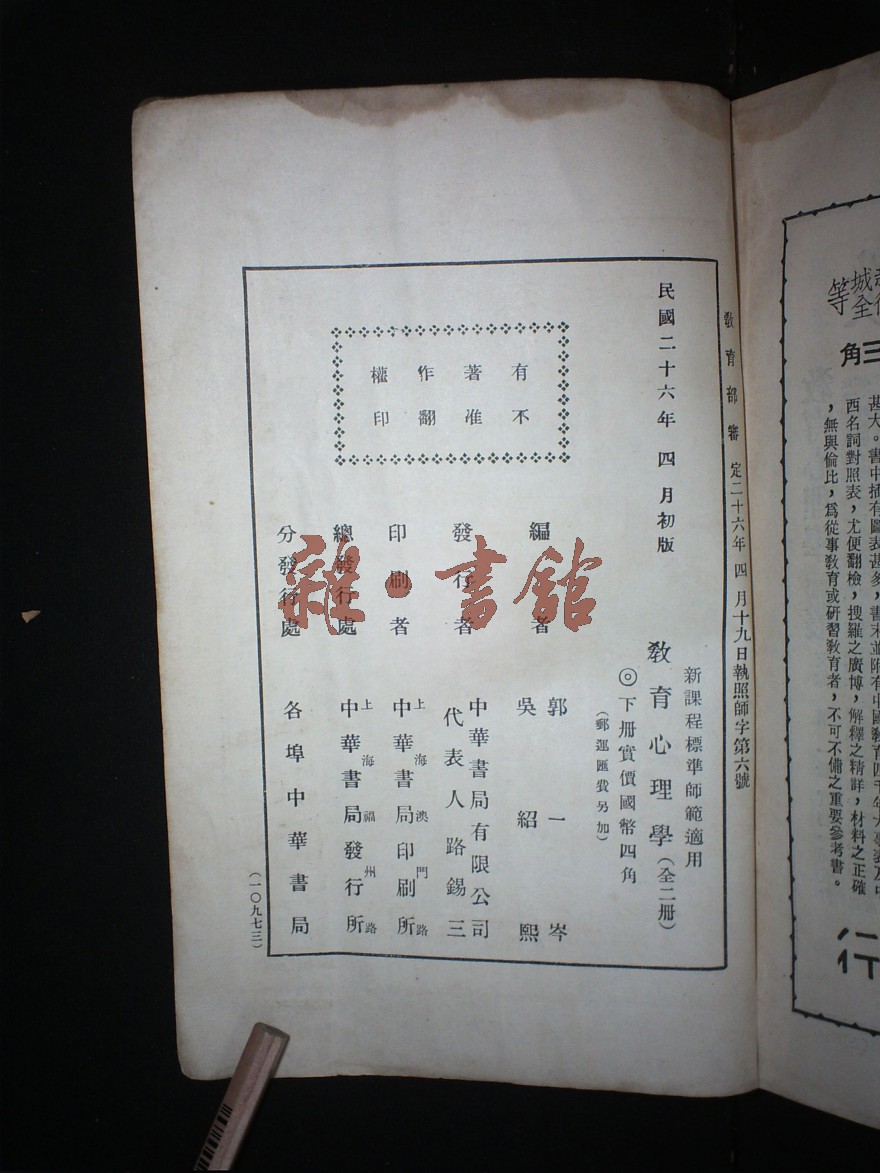 等
城全
三角
甚大。書中插有圖表甚多，書末並附有中國教育四千年大事表及中
西名詞對照表，尤便翻檢，搜羅之廣博，解釋之精詳，材料之正確
，無與倫比，為從事教育或研習教育者，不可不備之重要參考書。
行
教育部審定二十六年四月十九日執照師字第六號
民國二十六年四月初版
新課程標準師範適用
敎育心理學（全二册）
◎下册實價國幣四角
（郵運匯費另加）
有著作權
不准翻印
編者
郭一岑
吳紹熙
發行者
中華書局有限公司
代表人路錫三
印刷者
上海澳門路
中華書局印刷所
總發行處
上海福州路
中華書局發行所
分發行處
各埠中華書局
（一〇九七三）
雜·書館